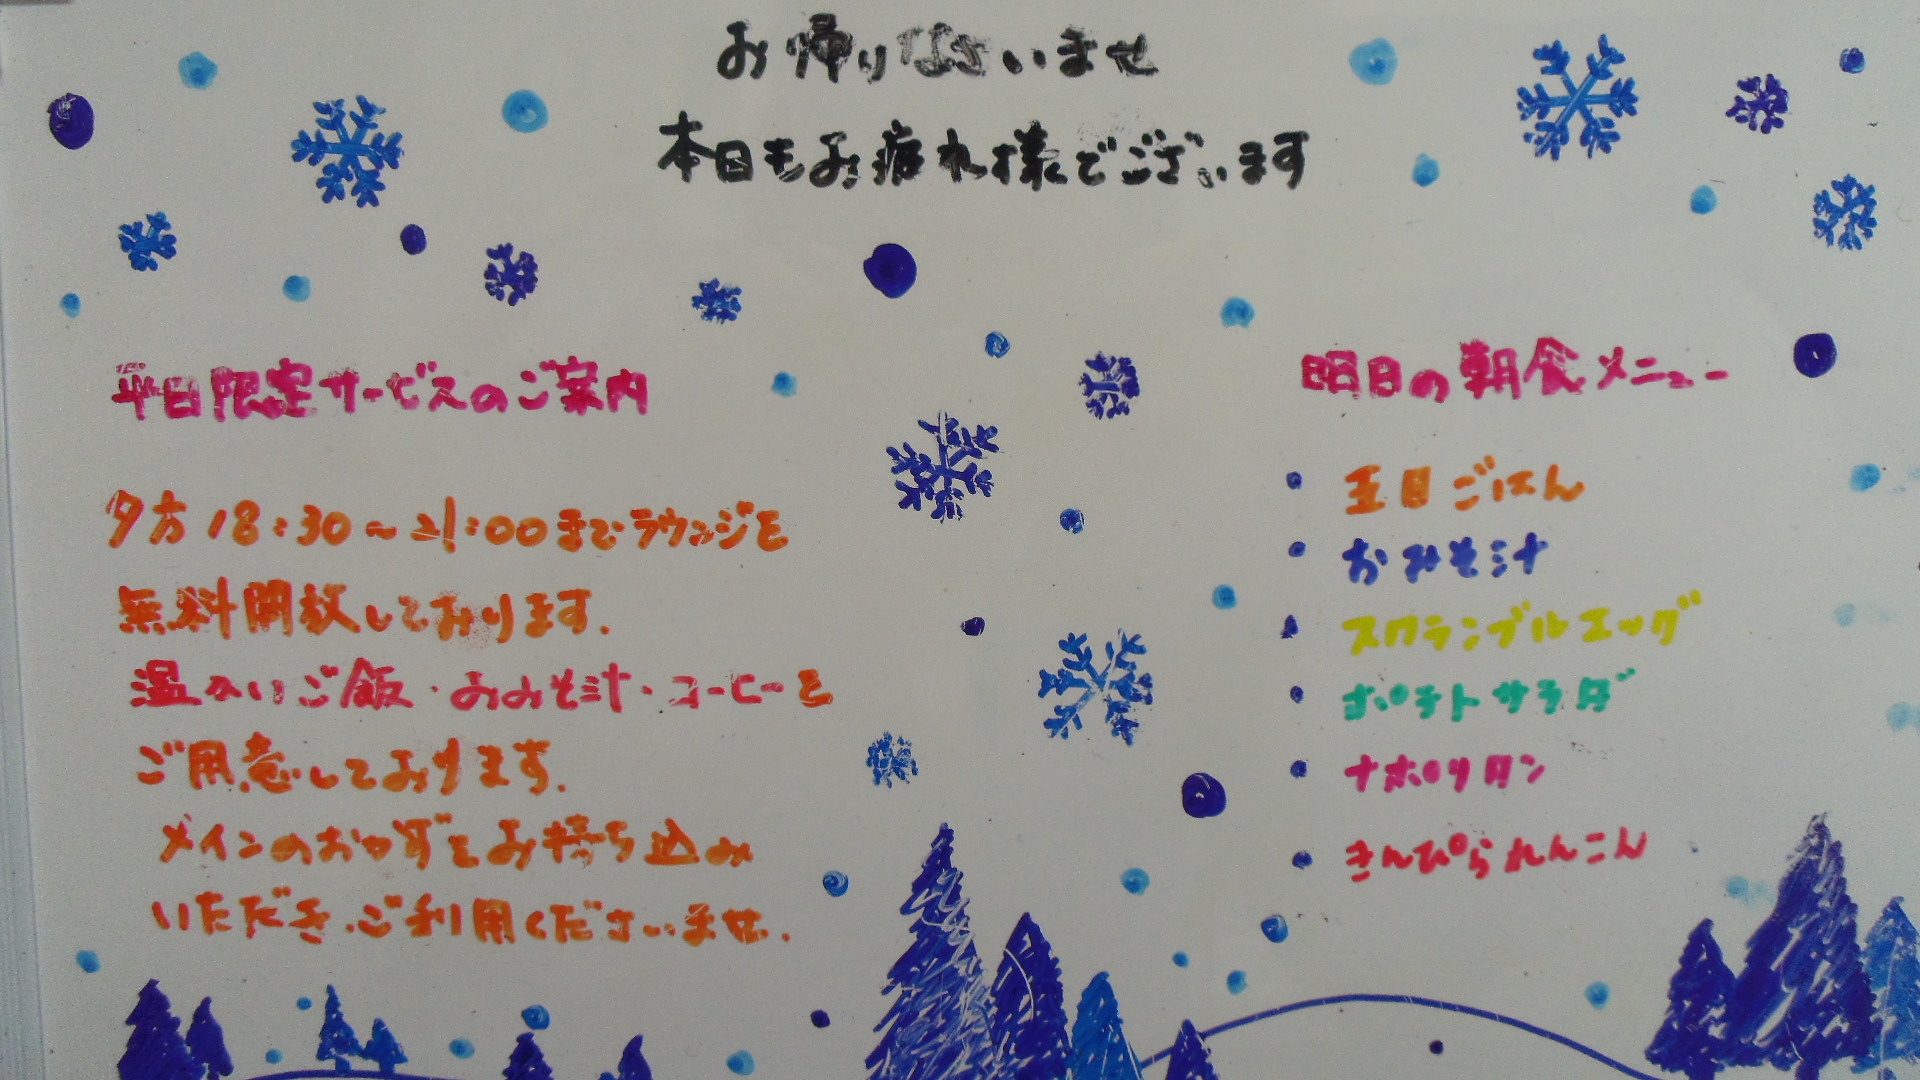 お帰りなさいませ
本日もお疲れ様でございます
平日限定サービスのご案内
夕方18:30～21:00までラウンジを
無料開放しております.
温かいご飯・おみそ汁・コーヒーを
ご用意しております.
メインのおかずをお持ち込み
いただき、ご利用くださいませ.
明日の朝食メニュー
・五目ごはん
・おみそ汁
・スクランブルエッグ
・ポテトサラダ
・ナポリタン
・きんぴられんこん